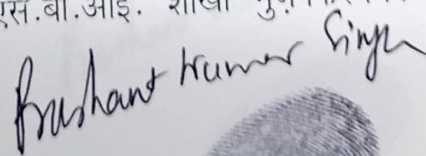 एस.बी.आई. शाखा
Prashant Kumar Singh